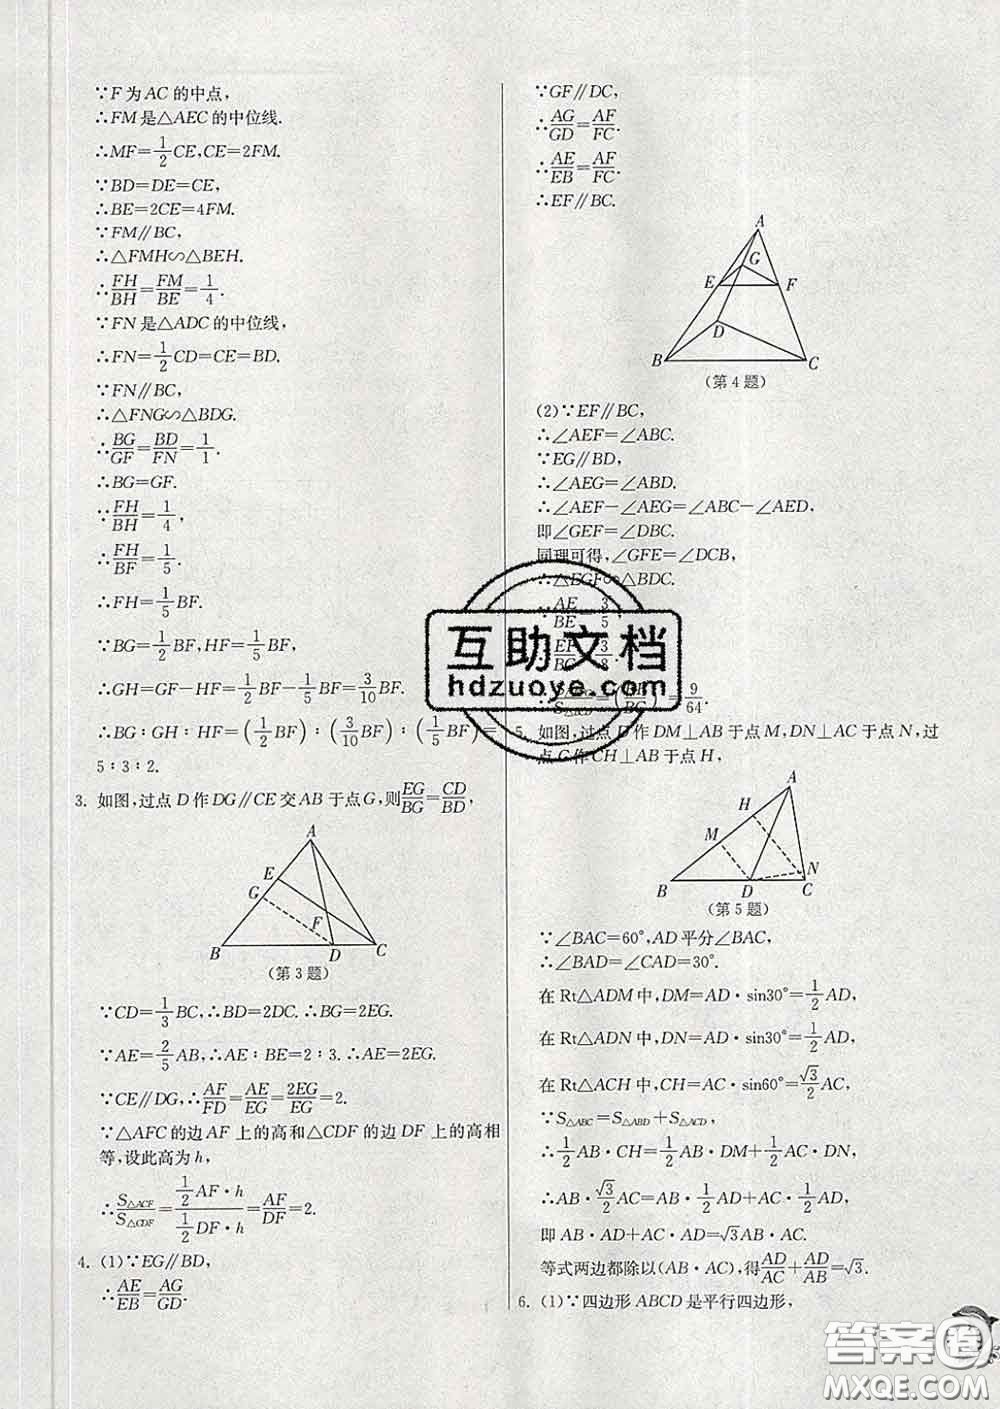 ∵F为AC的中点,
∴FM是△AEC的中位线.
∴MF=1/2CE,CE=2FM.
∵BD=DE=CE,
∴BE=2CE=4FM.
∵FM∥BC,
∴△FMH∽△BEH.
∴FH/BH=FM/BE=1/4.
∵FN是△ADC的中位线,
∴FN=1/2CD=CE=BD.
∵FN∥BC,
∴△FNG∽△BDG.
∴BG/GF=BD/FN=1/1.
∴BG=GF.
∵FH/BH=1/4,
∴FH/BF=1/5.
∴FH=1/5BF.
∵BG=1/2BF,HF=1/5BF,
∴GH=GF-HF=1/2BF-1/5BF=3/10BF.
∴BG∶GH∶HF=(1/2BF)∶(3/10BF)∶(1/5BF)=
5∶3∶2.
3. 如图,过点D作DG∥CE交AB于点G,则EG/BG=CD/BD,
A
E
G
F
B
D
C
(第3题)
∵CD=1/3BC,∴BD=2DC.∴BG=2EG.
∵AE=2/5AB,∴AE∶BE=2∶3.∴AE=2EG.
∵CE∥DG,∴AF/FD=AE/EG=2EG/EG=2.
∵△AFC的边AF上的高和△CDF的边DF上的高相
等,设此高为h,
∴S△ACF/S△CDF=(1/2AF·h)/(1/2DF·h)=AF/DF=2.
4. (1)∵EG∥BD,
∴AE/EB=AG/GD.
∵GF∥DC,
∴AG/GD=AF/FC.
∴AE/EB=AF/FC.
∴EF∥BC.
A
G
E
F
D
B
C
(第4题)
(2)∵EF∥BC,
∴∠AEF=∠ABC.
∵EG∥BD,
∴∠AEG=∠ABD.
∴∠AEF-∠AEG=∠ABC-∠AED,
即∠GEF=∠DBC.
同理可得,∠GFE=∠DCB,
∴△EGF∽△BDC.
∵AE/BE=3/5,
EF/BC=3/8.
=9/64.
5. 如图,过点D作DM⊥AB于点M,DN⊥AC于点N,过
点C作CH⊥AB于点H,
A
H
M
N
B
D
C
(第5题)
∵∠BAC=60°,AD平分∠BAC,
∴∠BAD=∠CAD=30°.
在Rt△ADM中,DM=AD·sin30°=1/2AD,
在Rt△ADN中,DN=AD·sin30°=1/2AD,
在Rt△ACH中,CH=AC·sin60°=√3/2AC.
∵S△ABC=S△ABD+S△ACD,
∴1/2AB·CH=1/2AB·DM+1/2AC·DN,
∴AB·√3/2AC=AB·1/2AD+AC·1/2AD,
即AB·AD+AC·AD=√3AB·AC.
等式两边都除以(AB·AC),得AD/AC+AD/AB=√3.
6. (1)∵四边形ABCD是平行四边形,
互助文档
hdzuoye.com
答案圈
MXQE.COM